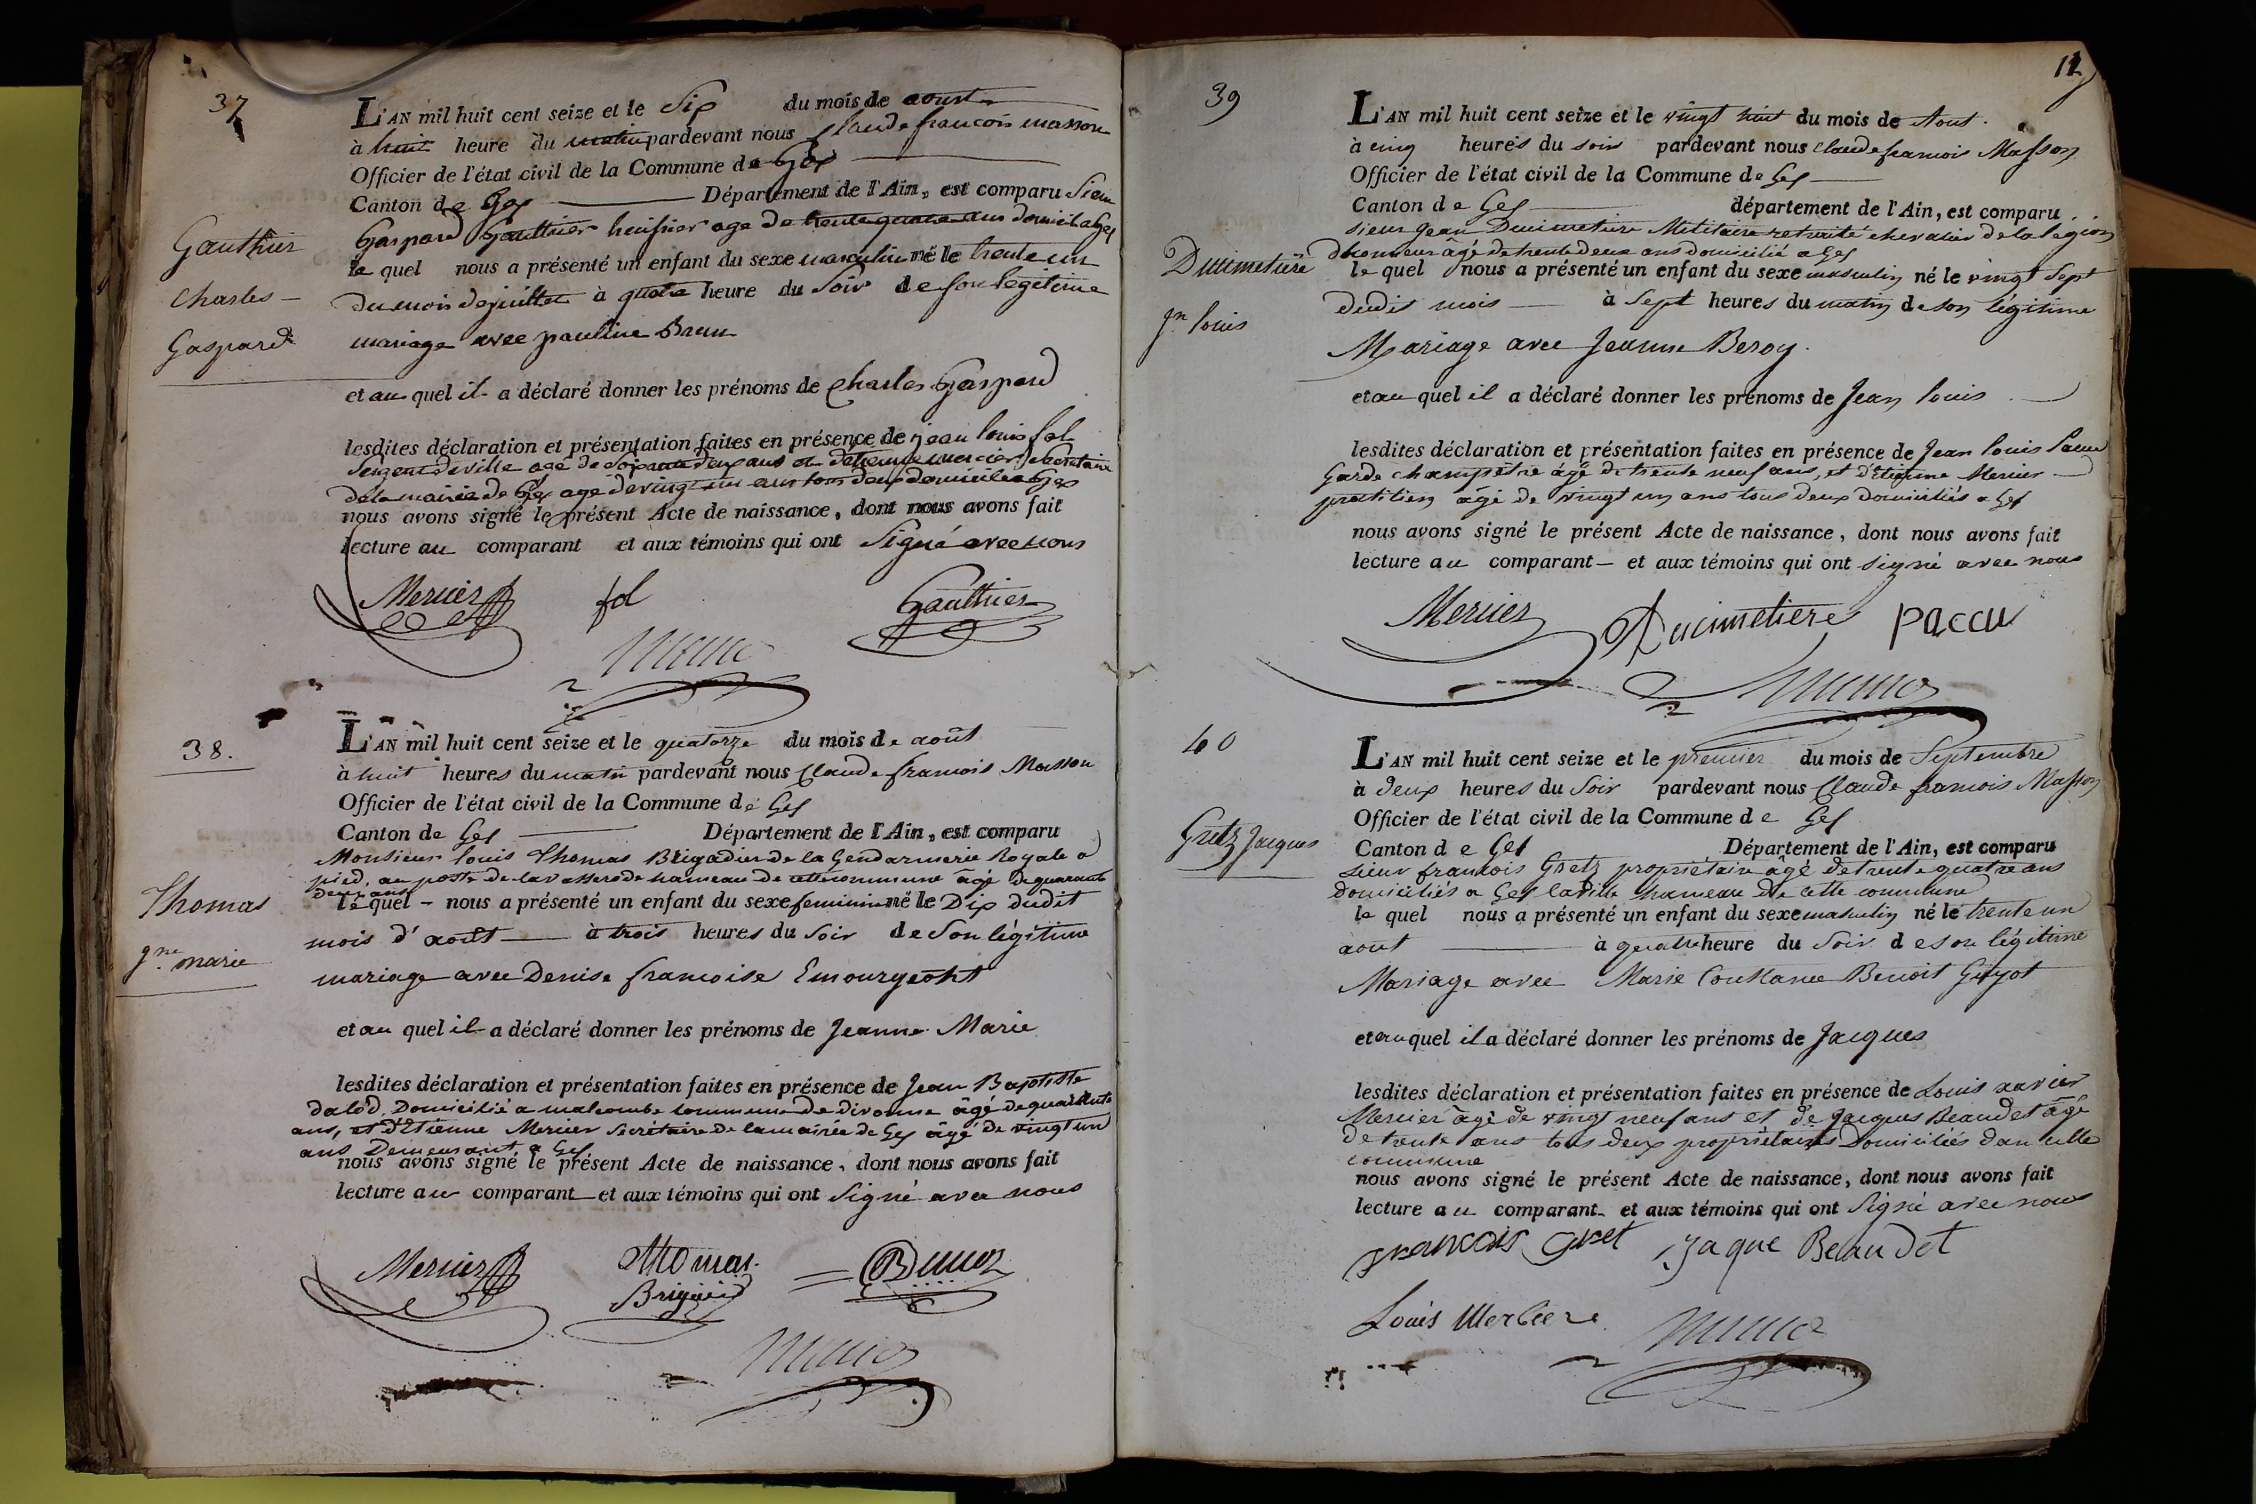 37
L'AN mil huit cent seize et le Six du mois de aoust
à huit heure du matin pardevant nous Claude francois masson
Officier de l'état civil de la Commune de Gex
Canton de Gex Département de l'Ain, est comparu Sieur
Gaspard Gauthier huissier age de trente quatre ans domicil a Gex
le quel nous a présenté un enfant du sexe masculin né le trente un
du mois de juillet à quatre heure du Soir de son legitime
mariage avec pauline Brun
et au quel il a déclaré donner les prénoms de Charles Gaspard
lesdites déclaration et présentation faites en présence de jean louis fol
Sergent de ville agé de Soixante deux ans et detienne mercier Secretaire
de la mairie de Gex age de vingt un ans tous deux domicilies a Gex
nous avons signé le présent Acte de naissance, dont nous avons fait
lecture au comparant et aux témoins qui ont Signé avec nous
Gauthier
Charles
Gaspard
Mercier fol Gauthier
38.
L'AN mil huit cent seize et le quatorze du mois de août
à huit heures du matin pardevant nous Claude francois Masson
Officier de l'état civil de la Commune de Gex
Canton de Gex Département de l'Ain, est comparu
Monsieur louis Thomas Brigadier de la Gendarmerie Royale a
pied, au poste de hameau de cette commune âgé de quarante
deux ans
le quel nous a présenté un enfant du sexe feminin né le Dix dudit
mois d'août à trois heures du Soir de Son légitime
mariage avec Denise francoise Emourgeont
et au quel il a déclaré donner les prénoms de Jeanne Marie
lesdites déclaration et présentation faites en présence de Jean Baptiste
dalod, Domicilié a malcombe commune de divonne âgé de quarante
ans, et d'Etienne Mercier Secrétaire de la mairie de Gex âgé de vingt un
ans Demeurant a Gex
nous avons signé le présent Acte de naissance, dont nous avons fait
lecture au comparant et aux témoins qui ont Signé avec nous
Thomas
jne marie
Mercier Thomas
39
12
L'AN mil huit cent seize et le vingt huit du mois de Aout.
à cinq heures du soir pardevant nous Claude francois Masson
Officier de l'état civil de la Commune de Gex
Canton de Gex département de l'Ain, est comparu
sieur Jean Ducimetiere Militaire retraité chevalier de la légion
d'honneur âgé de trente deux ans domicilié a Gex
le quel nous a présenté un enfant du sexe masculin né le vingt Sept
dudit mois à Sept heures du matin de son légitime
Mariage avec Jeanne Beroy.
et au quel il a déclaré donner les prénoms de Jean louis
lesdites déclaration et présentation faites en présence de Jean louis Paccu
Garde champetre âgé de trente neuf ans, et d'Etienne Mercier
pratitien âgé de vingt un ans tous deux domiciliés a Gex
nous avons signé le présent Acte de naissance, dont nous avons fait
lecture au comparant et aux témoins qui ont signé avec nous
Ducimetière
jn louis
Mercier Ducimetiere paccu
40
L'AN mil huit cent seize et le premier du mois de Septembre
à deux heures du Soir pardevant nous Claude francois Masson
Officier de l'état civil de la Commune de Gex
Canton de Gex Département de l'Ain, est comparu
sieur francois Gretz propriétaire âgé de trente quatre ans
domiciliés a Gex la ville hameau de cette commune
le quel nous a présenté un enfant du sexe masculin né le trente un
aout à quatre heure du Soir de son légitime
Mariage avec Marie Constance Benoit Guyot
et au quel il a déclaré donner les prénoms de Jacques
lesdites déclaration et présentation faites en présence de Louis xavier
Mercier âgé de vingt neuf ans et de Jacques Beaudet âgé
de trente ans tous deux propriétaires Domiciliés dans cette
commune
nous avons signé le présent Acte de naissance, dont nous avons fait
lecture au comparant et aux témoins qui ont Signé avec nous
Gretz Jacques
francois gret jaque Beaudet
Louis Merciere